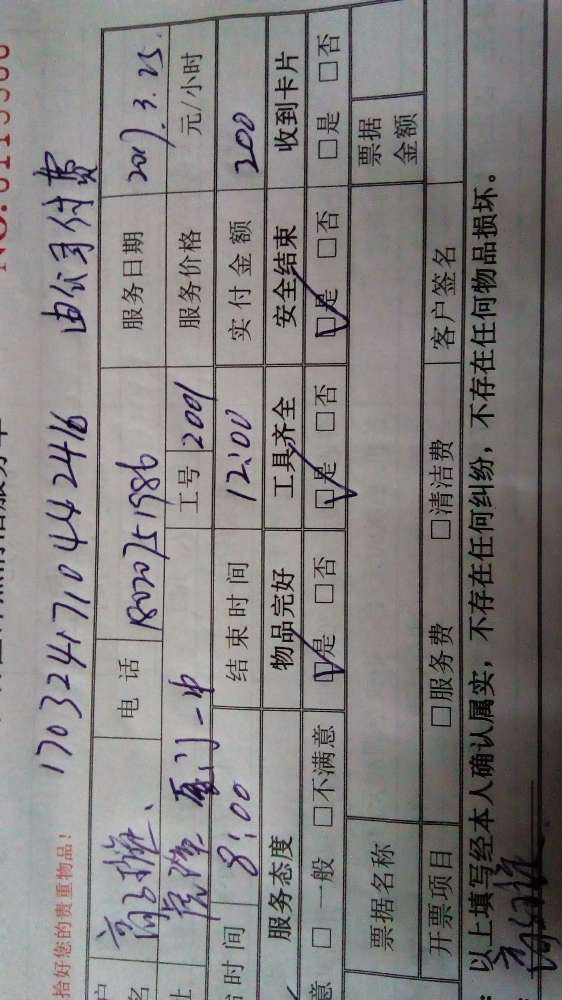 拾好您的贵重物品！
170324171044 2416 由公司付费
户名 电话 18020751986 服务日期 2017.3.25.
址 工号 2001 服务价格 元/小时
时间 8:00 结束时间 12:00 实付金额 200
服务态度 物品完好 工具齐全 安全结束 收到卡片
意 □一般 □不满意 ☑是 □否 ☑是 □否 ☑是 □否 □是 □否
票据名称 票据金额
开票项目 □服务费 □清洁费 客户签名
以上填写经本人确认属实，不存在任何纠纷，不存在任何物品损坏。